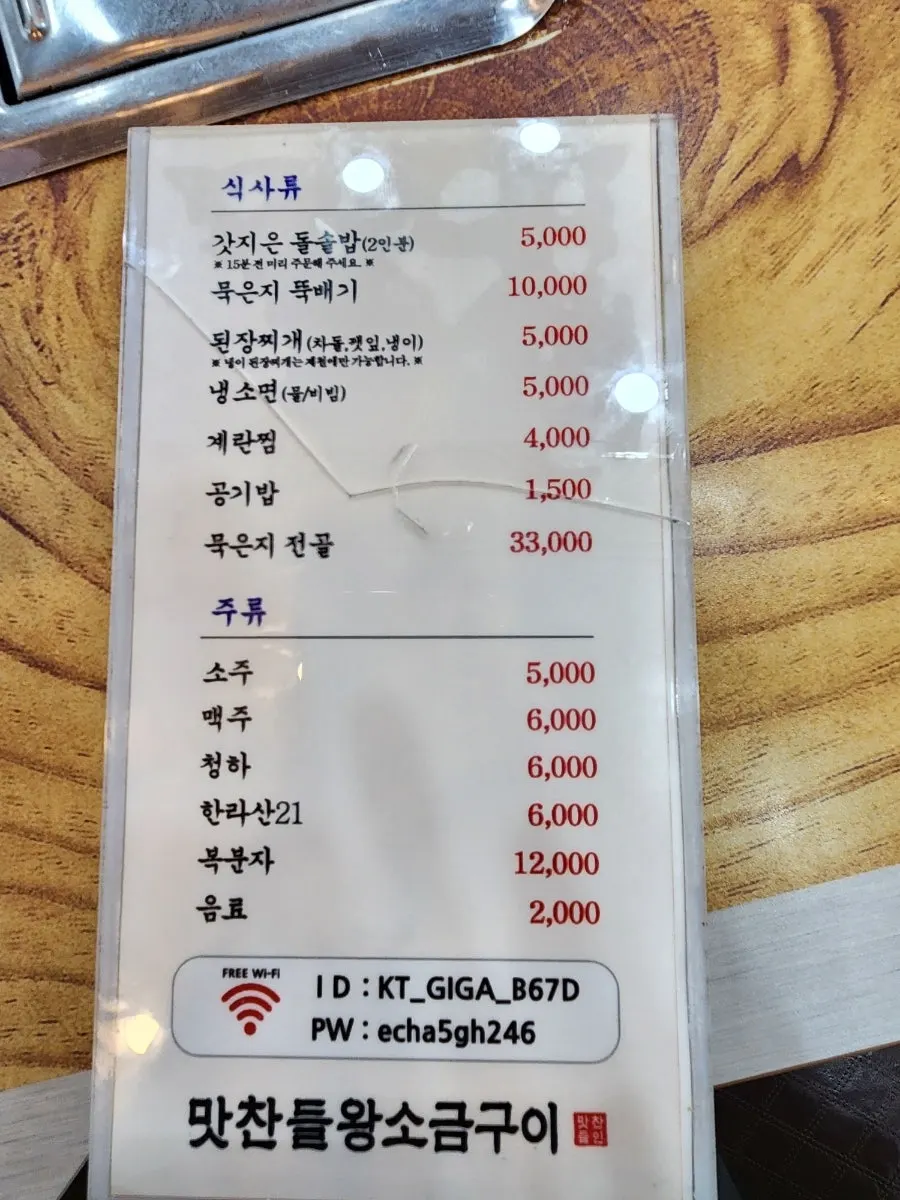 식사류
갓지은 돌솥밥(2인분) 5,000
※ 15분 전 미리 주문해 주세요. ※
묵은지 뚝배기 10,000
된장찌개 (차돌,깻잎,냉이) 5,000
※ 냉이 된장찌개는 제철에만 가능합니다. ※
냉소면(물/비빔) 5,000
계란찜 4,000
공기밥 1,500
묵은지 전골 33,000
주류
소주 5,000
맥주 6,000
청하 6,000
한라산21 6,000
복분자 12,000
음료 2,000
FREE Wi-Fi
ID : KT_GIGA_B67D
PW : echa5gh246
맛찬들왕소금구이 맛찬들인